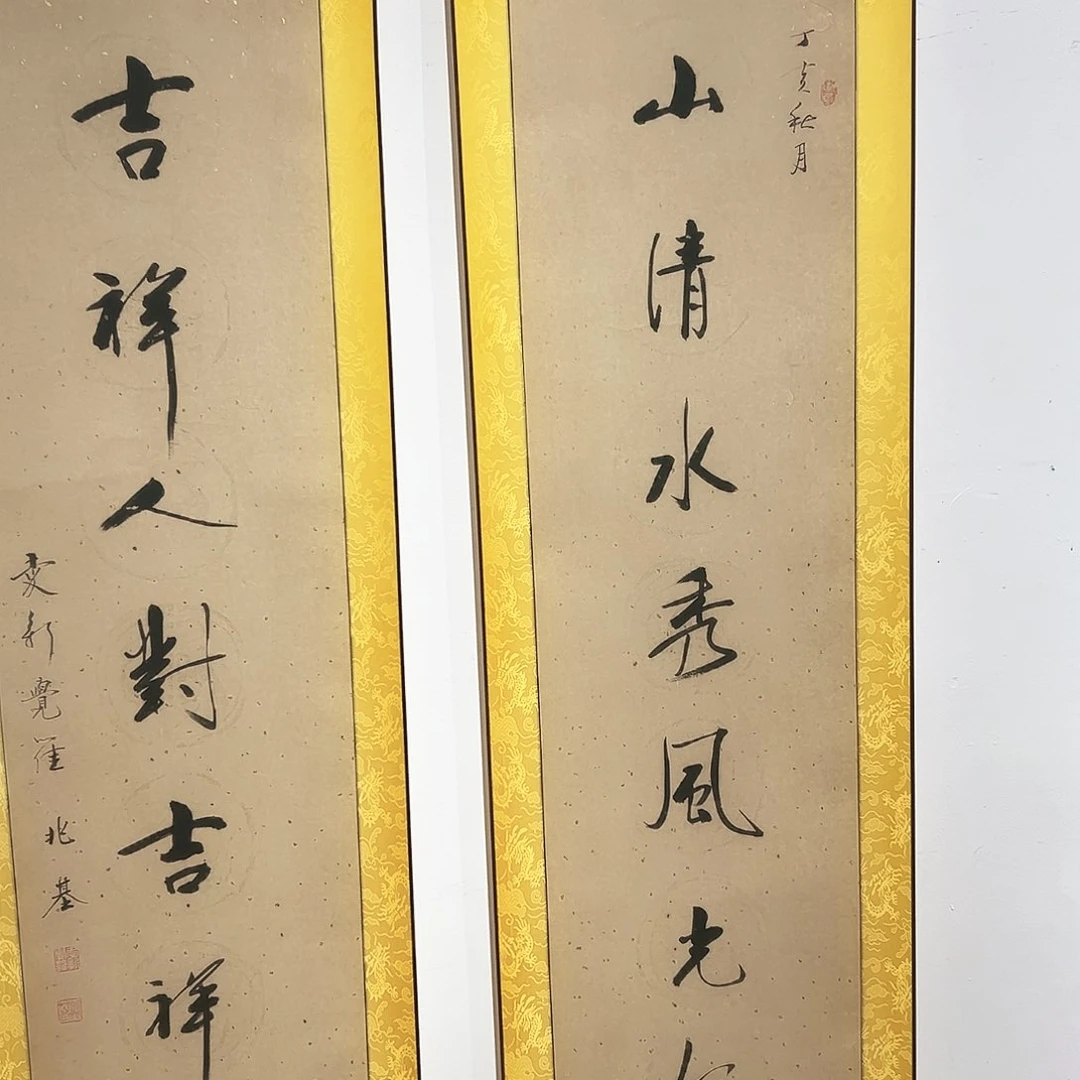 丁亥秋月
山清水秀風光
吉祥人對吉祥
愛新覺羅 兆基